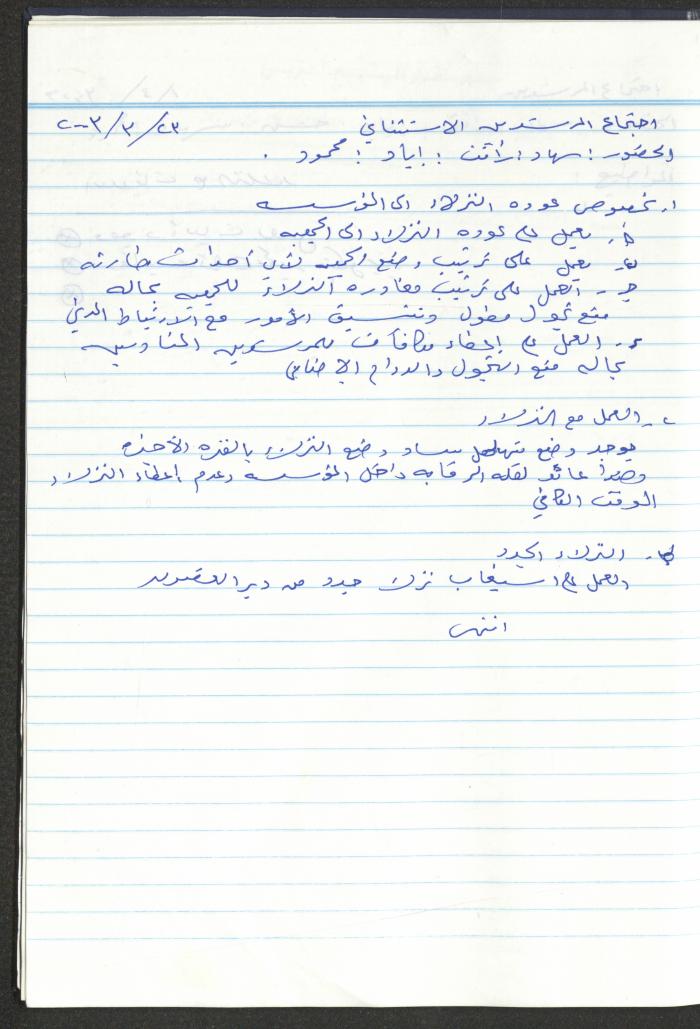 اجتماع المرشدين الاستثنائي ٢٣/٣/٢٠٠٣
الحضور : سهاد : رأفت : إياد : محمود .
١. بخصوص عودة النزلاء الى المؤسسه
أ. نعمل على عوده النزلاء الى الجمعيه
ب. نعمل على ترتيب وضع الجمعيه لأي أحداث طارئه
جـ - العمل على ترتيب مغادره النزلاء للجمعيه بحاله
منع تجول مطول وتنسيق الأمور مع الارتباط المدني
د - العمل على إعطاء مكافآت للمرشدين المناوبين
بحاله منع التجول والدوام الإضافي
٢ - العمل مع النزلاء
يوجد وضع تساهل يساد وضع النزلاء بالفتره الأخيره
وهذا عائد لقله الرقابه داخل المؤسسه وعدم إعطاء النزلاء
الوقت الكافي
النزلاء الجدد
العمل على استيعاب نزلاء جدد من دير الغصون
انتهى